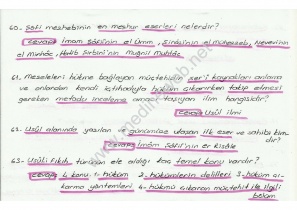 60- Şafi mezhebinin en meşhur eserleri nelerdir?
Cevap İmam Şâfi'nin el Ümm, Şirâzi'nin el Mühezzeb, Nevevi'nin
el Minhâc, Hatib Şirbini'nin Muğnil Muhtâc
61. Meseleleri hükme bağlayan müctehidin şer'î kaynakları anlama
ve onlardan kendi içtihadıyla hüküm çıkarırken takip etmesi
gereken metodu inceleme amacı taşıyan ilim hangisidir?
Cevap Usûl ilmi
62. Usûl alanında yazılan günümüze ulaşan ilk eser ve sahibi kim-
dir?
Cevap İmam Şâfii'nin er Risâle
63- Usûlü Fıkıh türünün ele aldığı kaç temel konu vardır?
Cevap 4 konu. 1- hüküm 2- hükümlerin delilleri 3- hüküm çı-
karma yöntemleri 4- hükmü çıkaran müctehid ile ilgili
bölüm